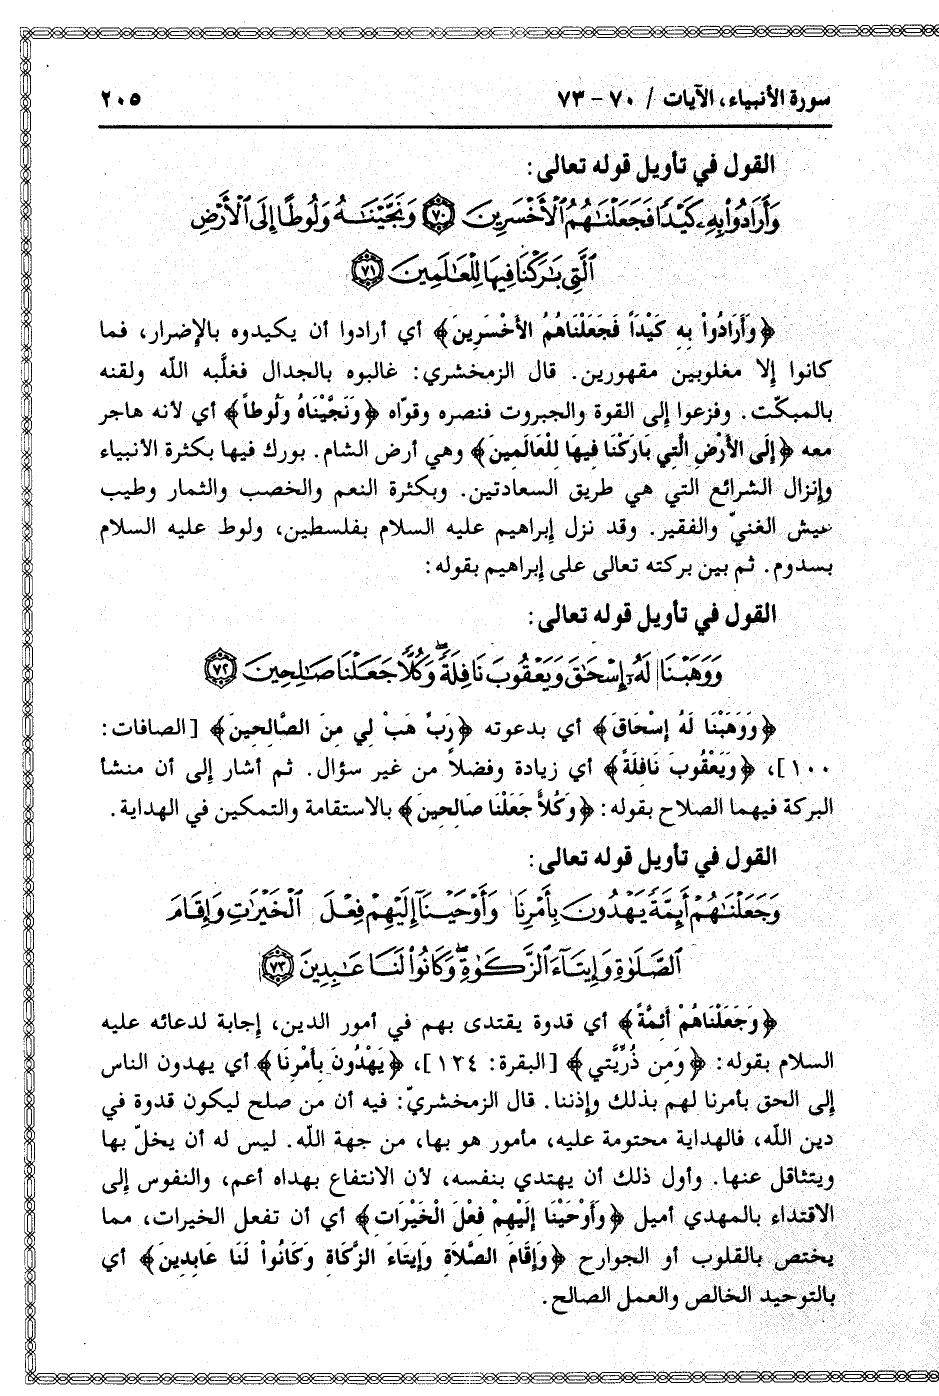 سورة الأنبياء، الآيات / ٧٠ - ٧٣
٢٠٥
القول في تأويل قوله تعالى:
وَأَرَادُوا۟ بِهِۦ كَيْدًا فَجَعَلْنَٰهُمُ ٱلْأَخْسَرِينَ ﴿٧٠﴾ وَنَجَّيْنَٰهُ وَلُوطًا إِلَى ٱلْأَرْضِ
ٱلَّتِي بَٰرَكْنَا فِيهَا لِلْعَٰلَمِينَ ﴿٧١﴾
﴿وَأَرَادُواْ بِهِ كَيْدَاً فَجَعَلْنَاهُمُ الأَخْسَرِينَ﴾ أي أرادوا أن يكيدوه بالإضرار، فما
كانوا إلا مغلوبين مقهورين. قال الزمخشري: غالبوه بالجدال فغلَّبه الله ولقنه
بالمبكّت. وفزعوا إلى القوة والجبروت فنصره وقوّاه ﴿وَنَجَّيْنَاهُ وَلُوطاً﴾ أي لأنه هاجر
معه ﴿إِلَى الأَرْضِ الَّتِي بَارَكْنَا فِيهَا لِلْعَالَمِينَ﴾ وهي أرض الشام. بورك فيها بكثرة الأنبياء
وإنزال الشرائع التي هي طريق السعادتين. وبكثرة النعم والخصب والثمار وطيب
عيش الغنيّ والفقير. وقد نزل إبراهيم عليه السلام بفلسطين، ولوط عليه السلام
بسدوم. ثم بين بركته تعالى على إبراهيم بقوله:
القول في تأويل قوله تعالى:
وَوَهَبْنَا لَهُۥٓ إِسْحَٰقَ وَيَعْقُوبَ نَافِلَةً ۖ وَكُلًّا جَعَلْنَا صَٰلِحِينَ ﴿٧٢﴾
﴿وَوَهَبْنَا لَهُ إِسْحَاقَ﴾ أي بدعوته ﴿رَبِّ هَبْ لِي مِنَ الصَّالِحِينَ﴾ [الصافات:
١٠٠]، ﴿وَيَعْقُوبَ نَافِلَةً﴾ أي زيادة وفضلاً من غير سؤال. ثم أشار إلى أن منشأ
البركة فيهما الصلاح بقوله: ﴿وَكُلاًّ جَعَلْنَا صَالِحِينَ﴾ بالاستقامة والتمكين في الهداية.
القول في تأويل قوله تعالى:
وَجَعَلْنَٰهُمْ أَئِمَّةً يَهْدُونَ بِأَمْرِنَا وَأَوْحَيْنَآ إِلَيْهِمْ فِعْلَ ٱلْخَيْرَٰتِ وَإِقَامَ
ٱلصَّلَوٰةِ وَإِيتَآءَ ٱلزَّكَوٰةِ ۖ وَكَانُوا۟ لَنَا عَٰبِدِينَ ﴿٧٣﴾
﴿وَجَعَلْنَاهُمْ أَئِمَّةً﴾ أي قدوة يقتدى بهم في أمور الدين، إجابة لدعائه عليه
السلام بقوله: ﴿وَمِن ذُرِّيَّتي﴾ [البقرة: ١٢٤]، ﴿يَهْدُونَ بِأَمْرِنَا﴾ أي يهدون الناس
إلى الحق بأمرنا لهم بذلك وإذننا. قال الزمخشريّ: فيه أن من صلح ليكون قدوة في
دين الله، فالهداية محتومة عليه، مأمور هو بها، من جهة الله. ليس له أن يخلّ بها
ويتثاقل عنها. وأول ذلك أن يهتدي بنفسه، لأن الانتفاع بهداه أعم، والنفوس إلى
الاقتداء بالمهدي أميل ﴿وَأَوْحَيْنَا إِلَيْهِمْ فِعْلَ الْخَيْرَاتِ﴾ أي أن تفعل الخيرات، مما
يختص بالقلوب أو الجوارح ﴿وَإِقَامَ الصَّلاَةِ وَإِيتَاءَ الزَّكَاةِ وَكَانُواْ لَنَا عَابِدِينَ﴾ أي
بالتوحيد الخالص والعمل الصالح.